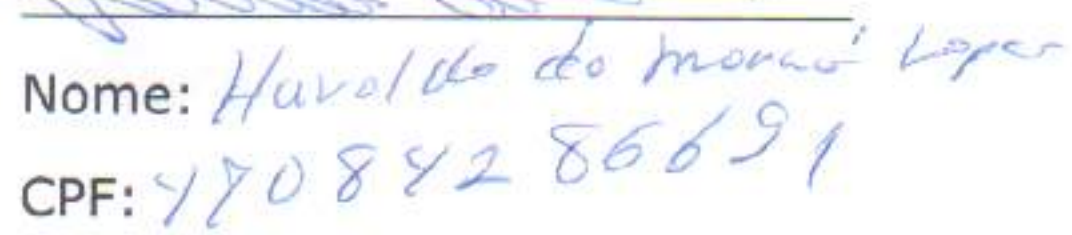 Nome: Haroldo do Lopes
CPF: 470842 86691